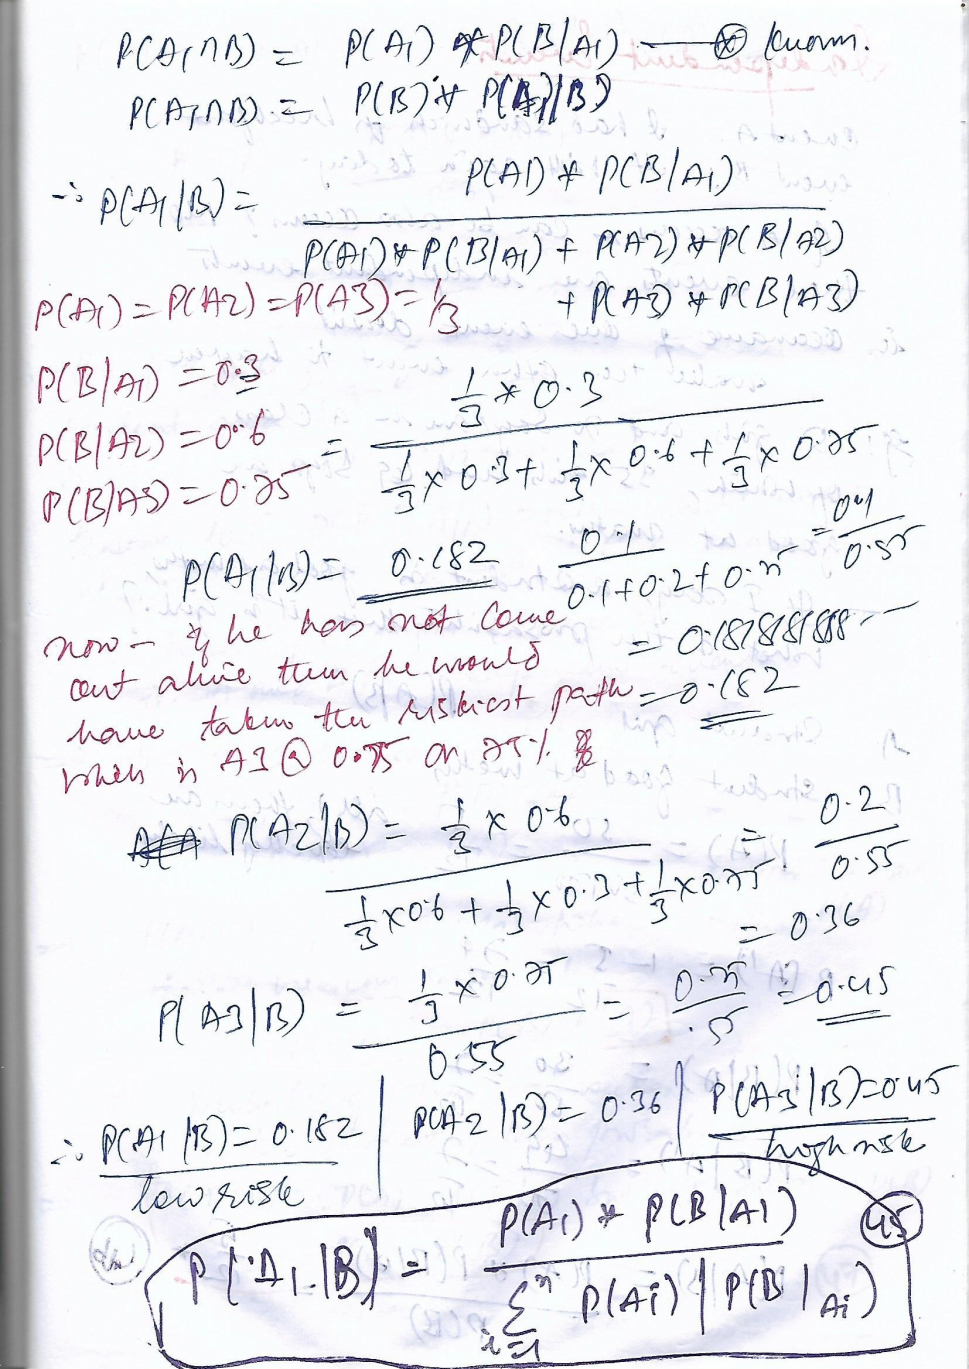 P(A₁∩B) = P(A₁) * P(B/A₁) —— ⊛ known.
P(A₁∩B) = P(B) * P(A₁/B)
∴ P(A₁/B) = P(A1) * P(B/A₁)
P(A₁) * P(B/A₁) + P(A2) * P(B/A2)
+ P(A3) * P(B/A3)
P(A₁) = P(A2) = P(A3) = 1/3
P(B/A₁) = 0.3
P(B/A2) = 0.6
P(B/A3) = 0.75
= 1/3 * 0.3
1/3 × 0.3 + 1/3 × 0.6 + 1/3 × 0.75
P(A₁/B) = 0.182
0.1 / 0.1+0.2+0.25 = 0.1 / 0.55
= 0.18181818
= 0.182
now – if he has not come
out alive then he would
have taken the riskiest path
which is A3 @ 0.75 or 75%
P(A2/B) = 1/3 × 0.6 = 0.2
1/3 × 0.6 + 1/3 × 0.3 + 1/3 × 0.75 0.55
= 0.36
P(A3/B) = 1/3 × 0.75 = 0.25 = 0.45
0.55 .55
∴ P(A1/B) = 0.182 | P(A2/B) = 0.36 | P(A3/B) = 0.45
low risk high risk
P(A₁/B) = P(A₁) * P(B/A1) 45
Σ n i=1 P(Ai) | P(B/Ai)